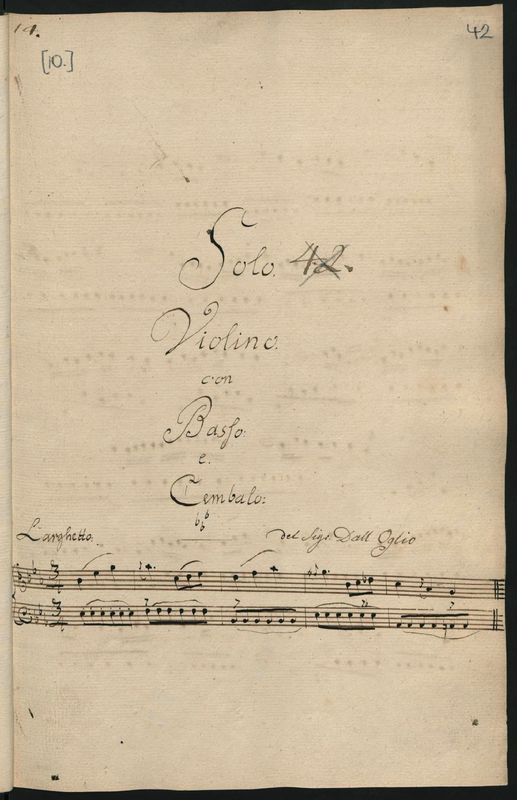 14.
42
[10.]
Solo. 42.
Violino.
con
Basso.
e.
Cembalo:
Larghetto.
del Sigr. Dall Oglio
3/4
3/4
7
7
7